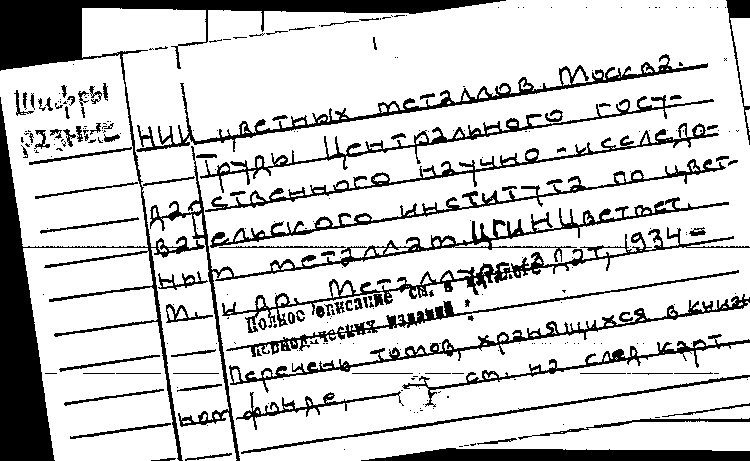 Шифры
разные
НИИ цветных металлов. Москва.
Труды Центрального госу-
дарственного научно-исследо-
вательского института по цвет-
ным металлам. ЦГИНЦветмет.
М. и др. Металлургиздат, 1934-
Полное описание см. в каталоге
периодических изданий
Перечень томов, хранящихся в книж-
ном фонде, см. на след. карт.